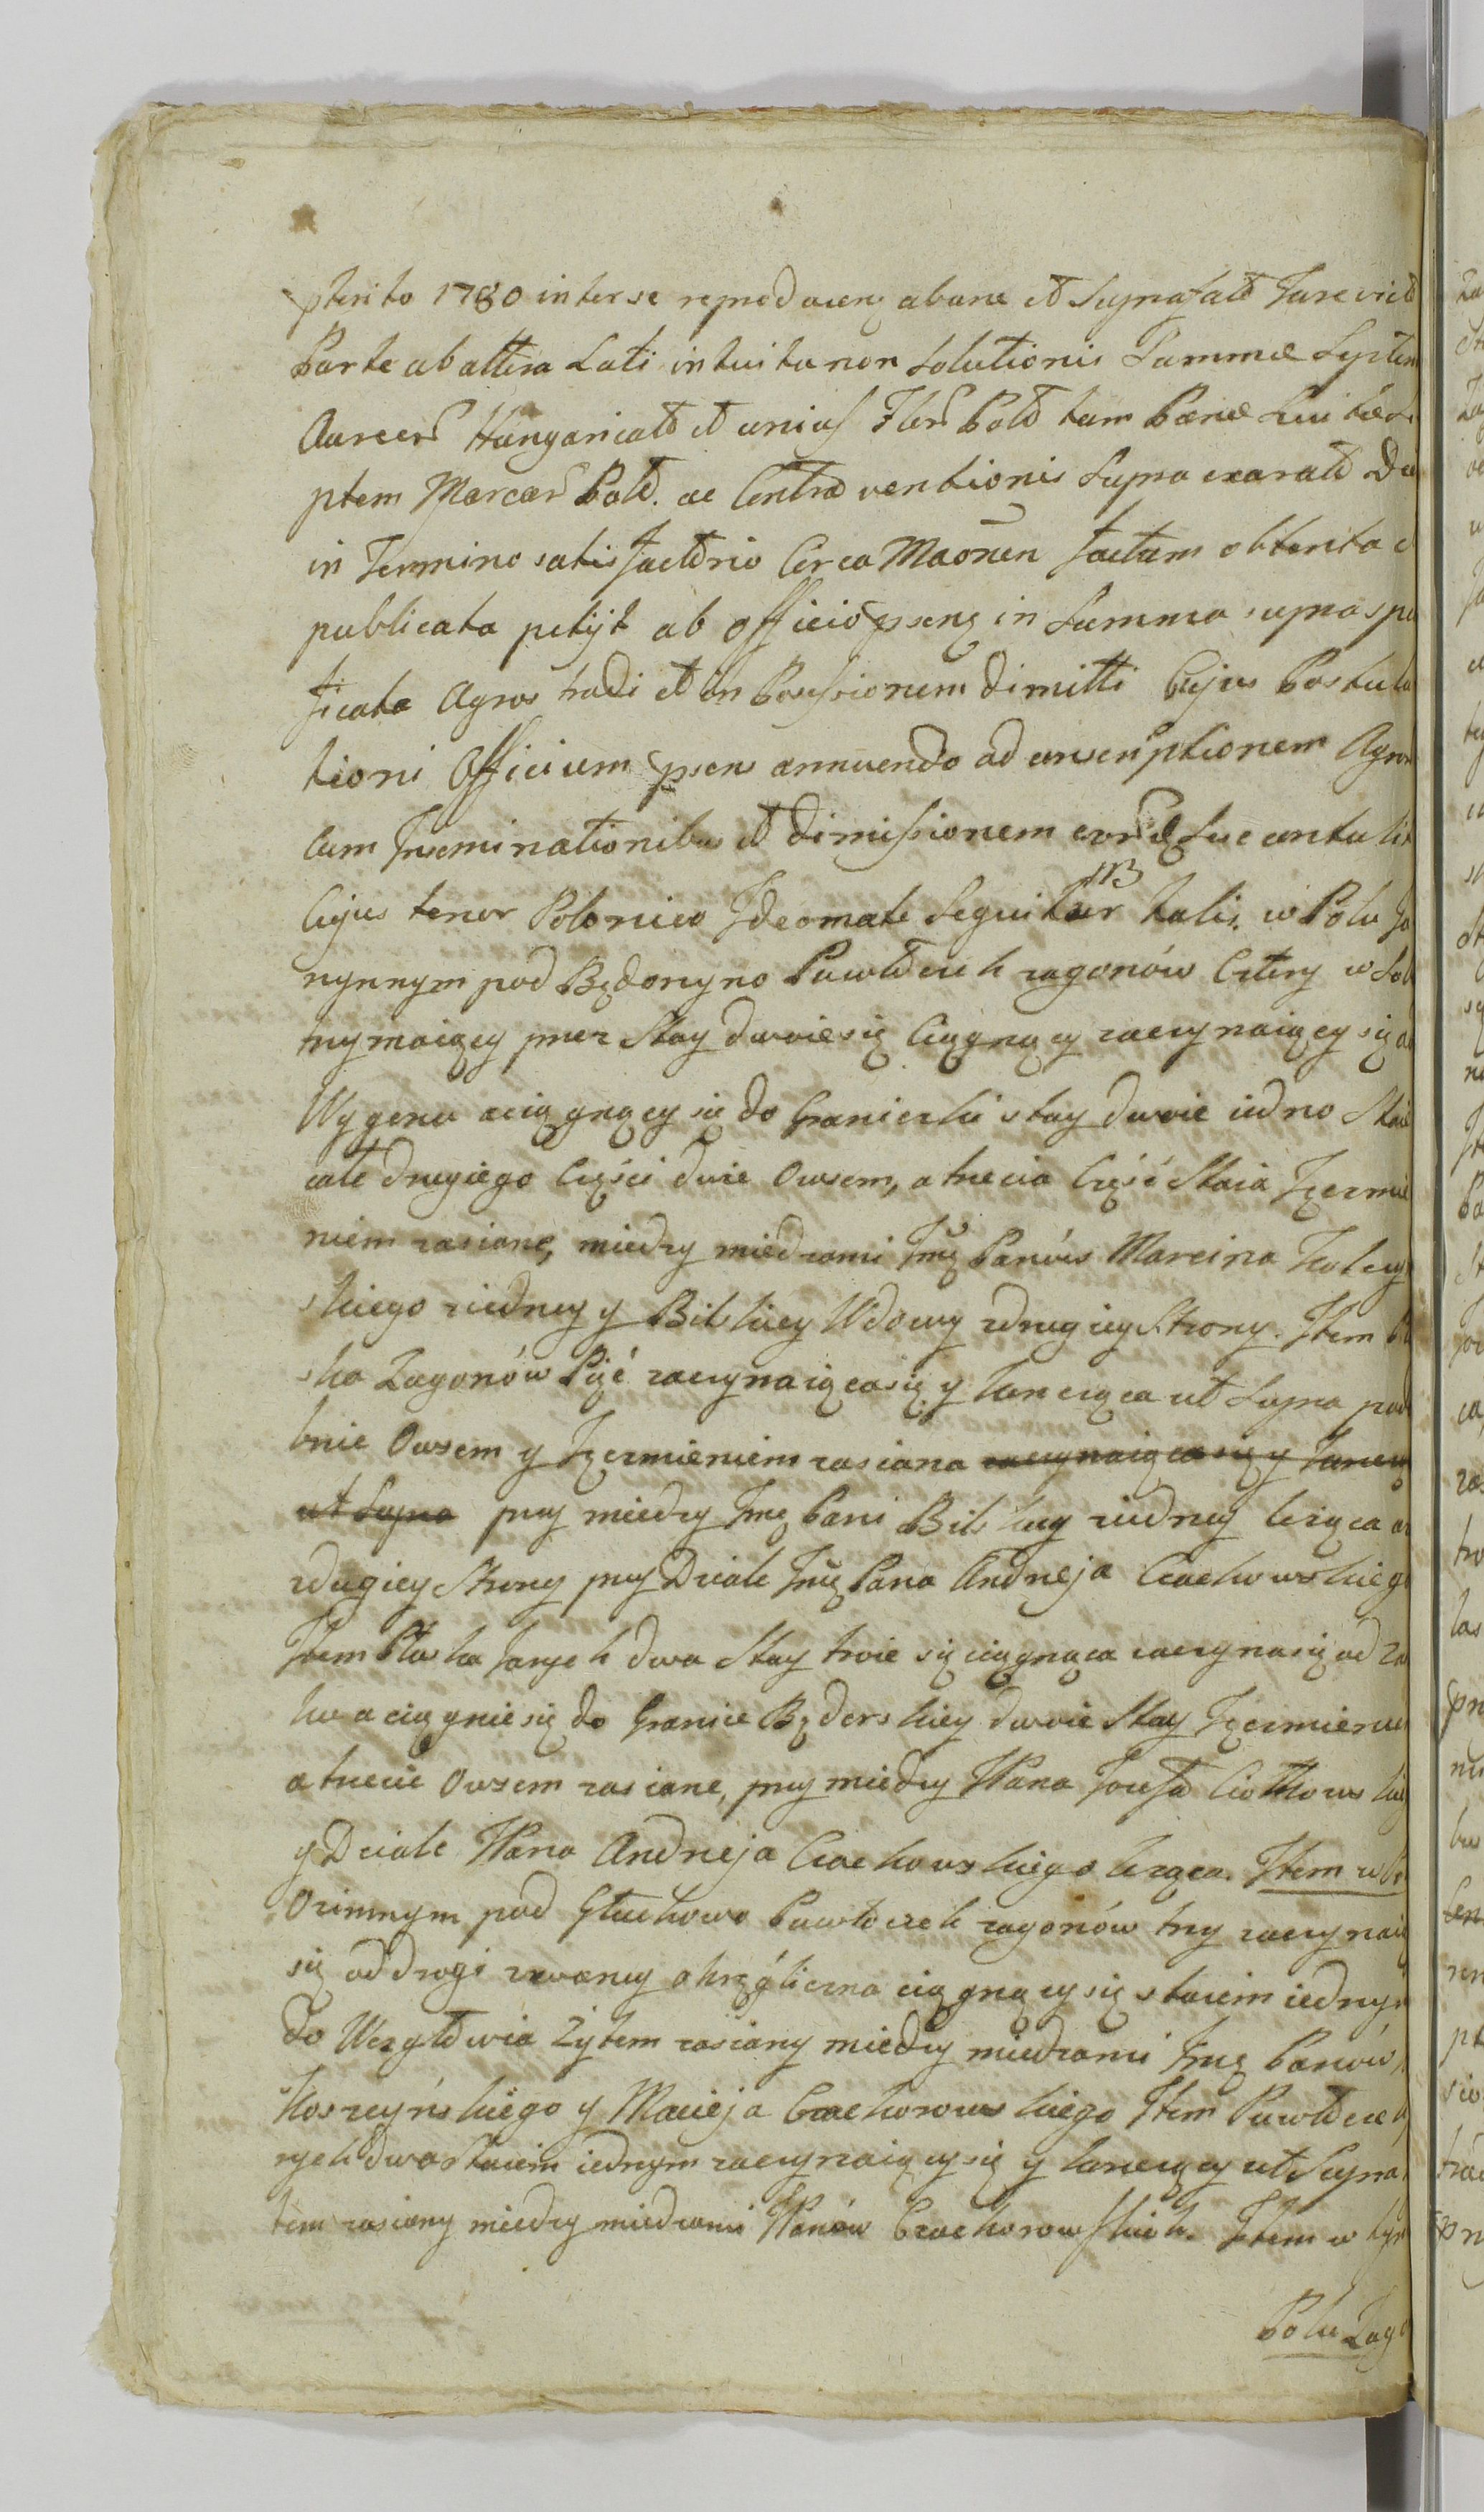 pterito 1780 inter se reproducen ab una et Supra fatā Jure vict
Parte ab altera Lati intuitu non Solutionis Summæ Septem
Aureor Hungaricał et unius Flor Poł tum Pænæ Luitæ Se
ptem Marcar Poł. ac Contra ventionis Supra exarał De
in Termino satisfactorio Circa Maōnen factum obtenta e
publicata petijt ab officio psenẓ in Summa supra spe
ficata Agros tradi et in Possessionem dimitti Cujus Postula
tioni Officium psens annuendo ad conscriptionem Agror
Cum Inseminationibus et dimissionem eorūdẓ Se contulit
Cujus tenor Polonico Ideomate Seguitur talis. NB w Polu Ja
rynnym pod Będorzyno Pawłoczek zagonów Cztery w Sob
trzymaiący przez Stay dwoie się Ciągnący zaczynaiący się o
Wygonu a ciągnący się do Graniczki stay dwoie iedno Staie
całe drugiego Części dwie Owsem, a trzecia Część Staia Jęczmie
niem zasiane, miedzy miedzami Jmę Panów Marcina Kobeys
skiego ziedney y Bilskiey Wdowy zdrugiey Strony. Item Pł
ska Zagonów Pięć zaczynaiąca się y kończąca ut Supra podo
bnie Owsem y Jęczmieniem zasiana zaczynaiąca się y kończ
ut Supra przy miedzy Jmę Pani Bilskiey ziedney leżąca a
zdugiey Strony przy Dziale Jmę Pana Andrzeja Czachowskiego
Item Płoska Jarych dwa Stay troie się ciągnąca zaczyna się od Za
ku a ciągnie się do Granic Będorskiey dwoie Stay Jęczmienie
a trzecie Owsem zasiane, przy miedzy JPana Jozefa Ciołkowskie
y Dziale JPana Andrzeja Czachowskiego leżąca. Item w Po
Ozimnym pod Głuchowo Pawłoczek zagonów trzy zaczynaią
się od drogi zwaney okręgliczna ciągnący się staiem iednym
do Wezgłowia Żytem zasiany miedzy miedzami Jmę Panów
Koszczyńskiego y Macieja Czachorowskiego Item Pawłocze
rych dwa Staiem iednym zaczynaiący się y kończący ut Supra
tem zasiany miedzy miedzami JPanów Czachorowskich. Item w tym
Polu Zago